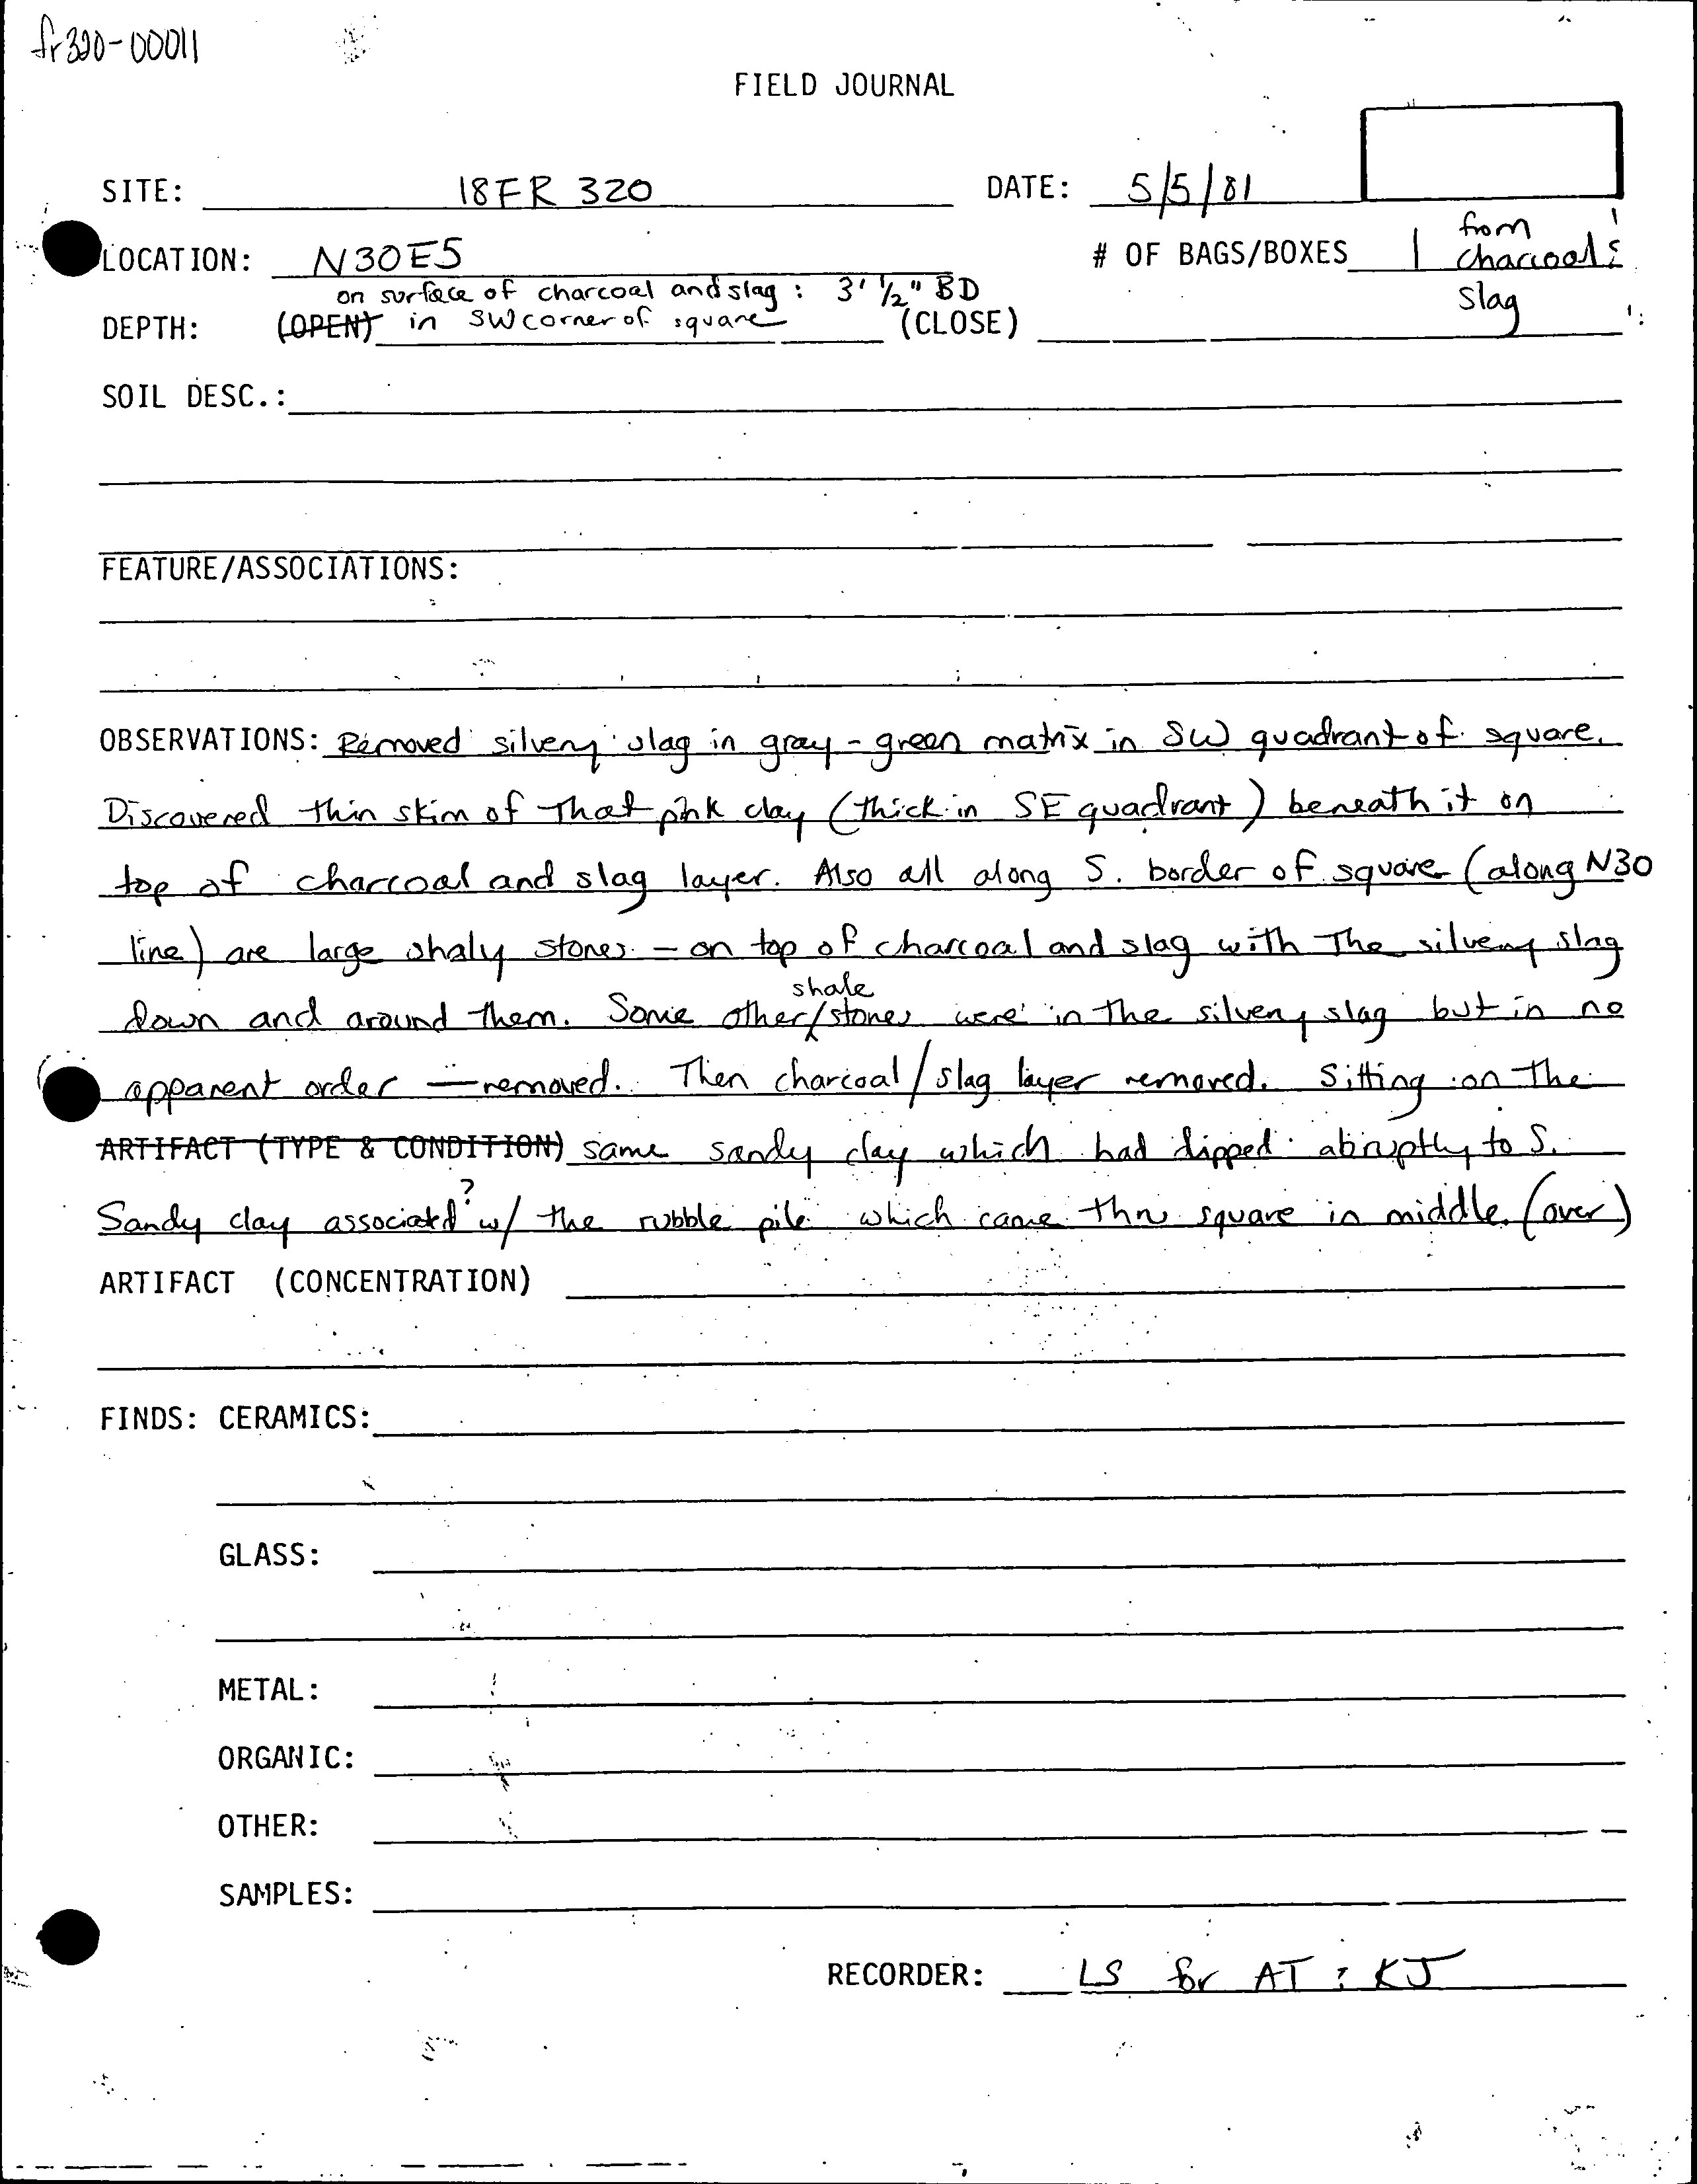 fr320-00011
FIELD JOURNAL
SITE: 18FR 320 DATE: 5/5/81
LOCATION: N30E5 # OF BAGS/BOXES 1 from charcoal & slag
on surface of charcoal and slag : 3' 1/2" BD
DEPTH: (OPEN) in SW corner of square (CLOSE)
SOIL DESC.:
FEATURE/ASSOCIATIONS:
OBSERVATIONS: Removed silvery slag in gray-green matrix in SW quadrant of square.
Discovered thin skim of that pink clay (thick in SE quadrant) beneath it on
top of charcoal and slag layer. Also all along S. border of square (along N30
line) are large shaly stones - on top of charcoal and slag with the silvery slag
down and around them. Some other shale stones were in the silvery slag but in no
apparent order - removed. Then charcoal/slag layer removed. Sitting on the
ARTIFACT (TYPE & CONDITION) same sandy clay which had dipped abruptly to S.
Sandy clay associated? w/ the rubble pile which came thru square in middle. (over)
ARTIFACT (CONCENTRATION)
FINDS: CERAMICS:
GLASS:
METAL:
ORGANIC:
OTHER:
SAMPLES:
RECORDER: LS for AT & KJ